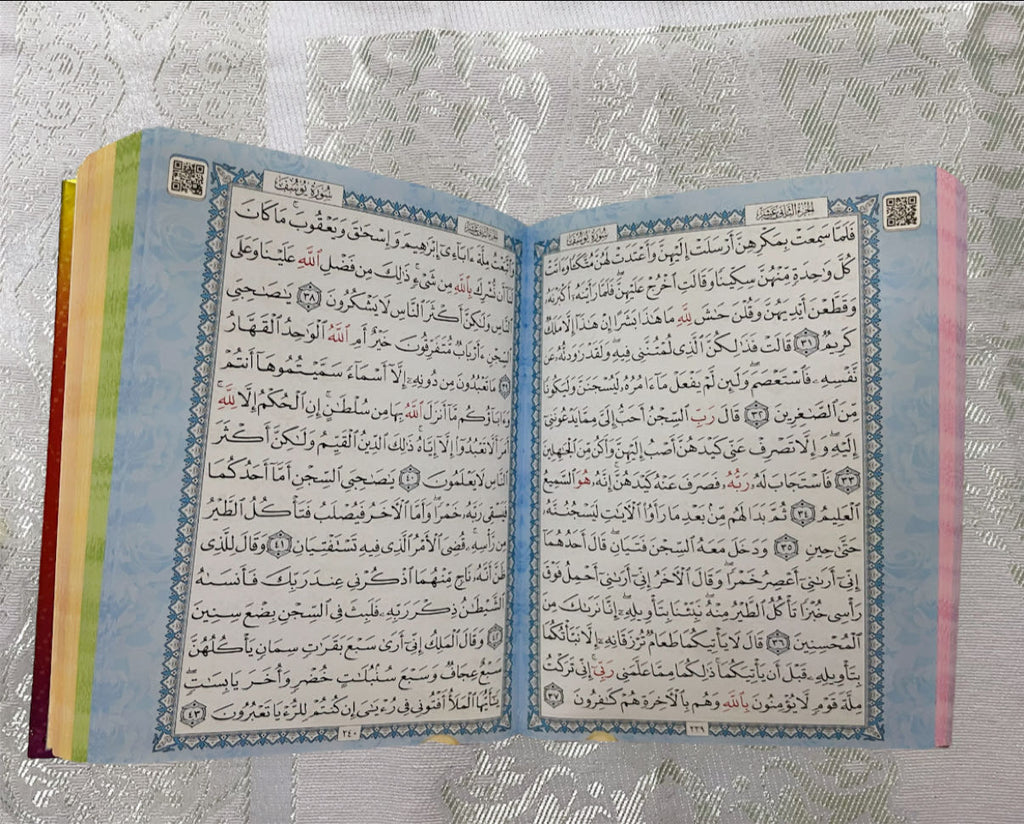 الجُزْءُ الثَّانِي عَشَرَ
سُورَةُ يُوسُفَ
فَلَمَّا سَمِعَتْ بِمَكْرِهِنَّ أَرْسَلَتْ إِلَيْهِنَّ وَأَعْتَدَتْ لَهُنَّ مُتَّكَـًٔا وَءَاتَتْ
كُلَّ وَٰحِدَةٍ مِّنْهُنَّ سِكِّينًا وَقَالَتِ ٱخْرُجْ عَلَيْهِنَّ ۖ فَلَمَّا رَأَيْنَهُۥٓ أَكْبَرْنَهُۥ
وَقَطَّعْنَ أَيْدِيَهُنَّ وَقُلْنَ حَٰشَ لِلَّهِ مَا هَٰذَا بَشَرًا إِنْ هَٰذَآ إِلَّا مَلَكٌ
كَرِيمٌ ٣١ قَالَتْ فَذَٰلِكُنَّ ٱلَّذِى لُمْتُنَّنِى فِيهِ ۖ وَلَقَدْ رَٰوَدتُّهُۥ عَن
نَّفْسِهِۦ فَٱسْتَعْصَمَ ۖ وَلَئِن لَّمْ يَفْعَلْ مَآ ءَامُرُهُۥ لَيُسْجَنَنَّ وَلَيَكُونًا
مِّنَ ٱلصَّٰغِرِينَ ٣٢ قَالَ رَبِّ ٱلسِّجْنُ أَحَبُّ إِلَىَّ مِمَّا يَدْعُونَنِىٓ
إِلَيْهِ ۖ وَإِلَّا تَصْرِفْ عَنِّى كَيْدَهُنَّ أَصْبُ إِلَيْهِنَّ وَأَكُن مِّنَ ٱلْجَٰهِلِينَ
٣٣ فَٱسْتَجَابَ لَهُۥ رَبُّهُۥ فَصَرَفَ عَنْهُ كَيْدَهُنَّ ۚ إِنَّهُۥ هُوَ ٱلسَّمِيعُ
ٱلْعَلِيمُ ٣٤ ثُمَّ بَدَا لَهُم مِّنۢ بَعْدِ مَا رَأَوُا۟ ٱلْءَايَٰتِ لَيَسْجُنُنَّهُۥ
حَتَّىٰ حِينٍ ٣٥ وَدَخَلَ مَعَهُ ٱلسِّجْنَ فَتَيَانِ ۖ قَالَ أَحَدُهُمَآ
إِنِّىٓ أَرَىٰنِىٓ أَعْصِرُ خَمْرًا ۖ وَقَالَ ٱلْءَاخَرُ إِنِّىٓ أَرَىٰنِىٓ أَحْمِلُ فَوْقَ
رَأْسِى خُبْزًا تَأْكُلُ ٱلطَّيْرُ مِنْهُ ۖ نَبِّئْنَا بِتَأْوِيلِهِۦٓ ۖ إِنَّا نَرَىٰكَ مِنَ
ٱلْمُحْسِنِينَ ٣٦ قَالَ لَا يَأْتِيكُمَا طَعَامٌ تُرْزَقَانِهِۦٓ إِلَّا نَبَّأْتُكُمَا
بِتَأْوِيلِهِۦ قَبْلَ أَن يَأْتِيَكُمَا ۚ ذَٰلِكُمَا مِمَّا عَلَّمَنِى رَبِّىٓ ۚ إِنِّى تَرَكْتُ
مِلَّةَ قَوْمٍ لَّا يُؤْمِنُونَ بِٱللَّهِ وَهُم بِٱلْءَاخِرَةِ هُمْ كَٰفِرُونَ ٣٧
٢٣٩
الجُزْءُ الثَّانِي عَشَرَ
سُورَةُ يُوسُفَ
وَٱتَّبَعْتُ مِلَّةَ ءَابَآءِىٓ إِبْرَٰهِيمَ وَإِسْحَٰقَ وَيَعْقُوبَ ۚ مَا كَانَ
لَنَآ أَن نُّشْرِكَ بِٱللَّهِ مِن شَىْءٍ ۚ ذَٰلِكَ مِن فَضْلِ ٱللَّهِ عَلَيْنَا وَعَلَى
ٱلنَّاسِ وَلَٰكِنَّ أَكْثَرَ ٱلنَّاسِ لَا يَشْكُرُونَ ٣٨ يَٰصَٰحِبَىِ
ٱلسِّجْنِ ءَأَرْبَابٌ مُّتَفَرِّقُونَ خَيْرٌ أَمِ ٱللَّهُ ٱلْوَٰحِدُ ٱلْقَهَّارُ
٣٩ مَا تَعْبُدُونَ مِن دُونِهِۦٓ إِلَّآ أَسْمَآءً سَمَّيْتُمُوهَآ أَنتُمْ
وَءَابَآؤُكُم مَّآ أَنزَلَ ٱللَّهُ بِهَا مِن سُلْطَٰنٍ ۚ إِنِ ٱلْحُكْمُ إِلَّا لِلَّهِ ۚ
أَمَرَ أَلَّا تَعْبُدُوٓا۟ إِلَّآ إِيَّاهُ ۚ ذَٰلِكَ ٱلدِّينُ ٱلْقَيِّمُ وَلَٰكِنَّ أَكْثَرَ
ٱلنَّاسِ لَا يَعْلَمُونَ ٤٠ يَٰصَٰحِبَىِ ٱلسِّجْنِ أَمَّآ أَحَدُكُمَا
فَيَسْقِى رَبَّهُۥ خَمْرًا ۖ وَأَمَّا ٱلْءَاخَرُ فَيُصْلَبُ فَتَأْكُلُ ٱلطَّيْرُ
مِن رَّأْسِهِۦ ۚ قُضِىَ ٱلْأَمْرُ ٱلَّذِى فِيهِ تَسْتَفْتِيَانِ ٤١ وَقَالَ لِلَّذِى
ظَنَّ أَنَّهُۥ نَاجٍ مِّنْهُمَا ٱذْكُرْنِى عِندَ رَبِّكَ فَأَنسَىٰهُ
ٱلشَّيْطَٰنُ ذِكْرَ رَبِّهِۦ فَلَبِثَ فِى ٱلسِّجْنِ بِضْعَ سِنِينَ
٤٢ وَقَالَ ٱلْمَلِكُ إِنِّىٓ أَرَىٰ سَبْعَ بَقَرَٰتٍ سِمَانٍ يَأْكُلُهُنَّ
سَبْعٌ عِجَافٌ وَسَبْعَ سُنۢبُلَٰتٍ خُضْرٍ وَأُخَرَ يَابِسَٰتٍ ۖ
يَٰٓأَيُّهَا ٱلْمَلَأُ أَفْتُونِى فِى رُءْيَٰىَ إِن كُنتُمْ لِلرُّءْيَا تَعْبُرُونَ ٤٣
٢٤٠